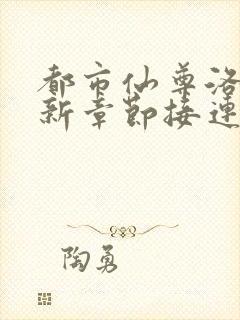 都市仙尊洛
新章节接连
陶勇